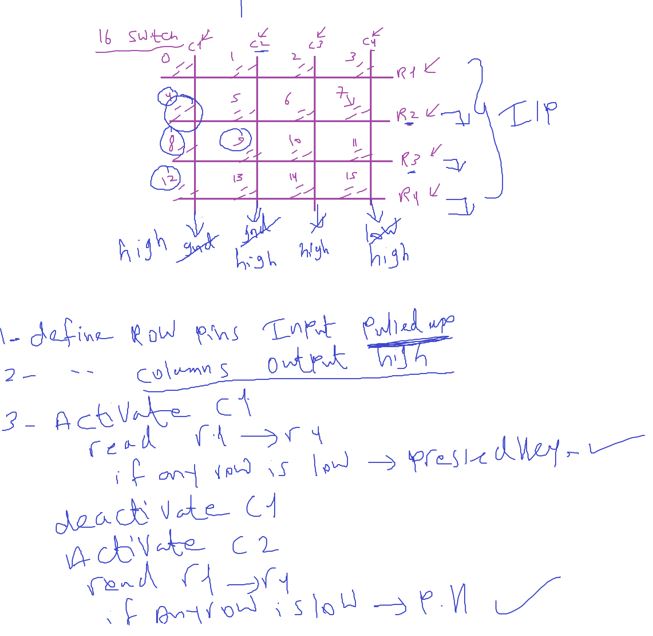 16 switch
C1 C2 C3 C4
0 1 2 3 R1
4 5 6 7 R2 I/P
8 9 10 11 R3
12 13 14 15 R4
high gnd gnd high low
high high
1- define Row pins Input Pulled up
2- " columns output high
3- Activate C1
read r1 → r4
if any row is low → pressed key.
deactivate C1
Activate C2
read r1 → r4
if any row is low → P.K